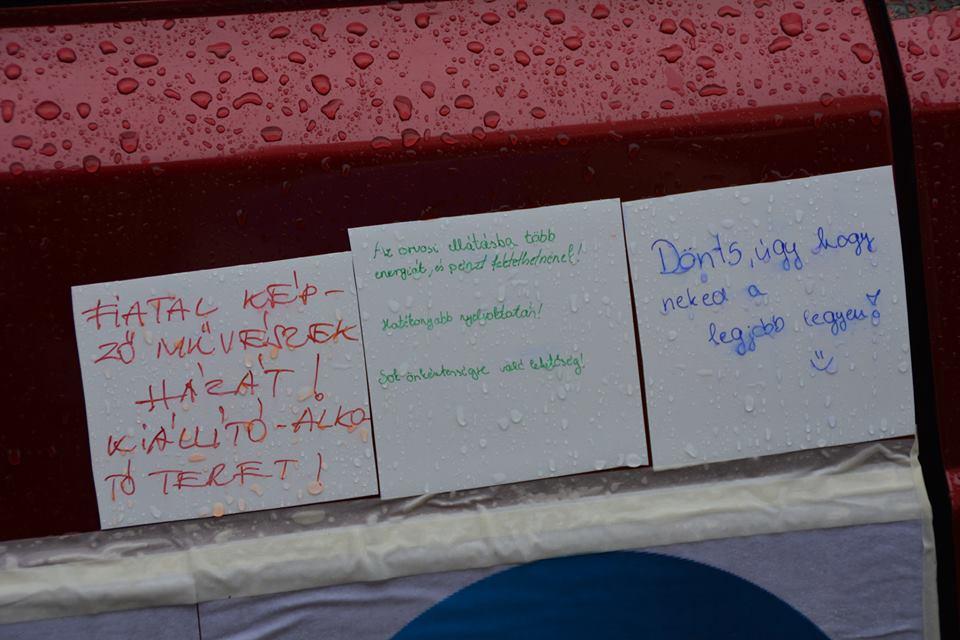 FIATAL KÉP-
ZŐ MŰVÉSZEK
HÁZÁT!
KIÁLLÍTÓ-ALKO
TÓ TERET!
Az orvosi ellátásba több
energiát, és pénzt fektethetnének!
Hatékonyabb nyelvoktatást!
Sok önkéntességre való lehetőség!
Dönts, úgy hogy
neked a
legjobb legyen!